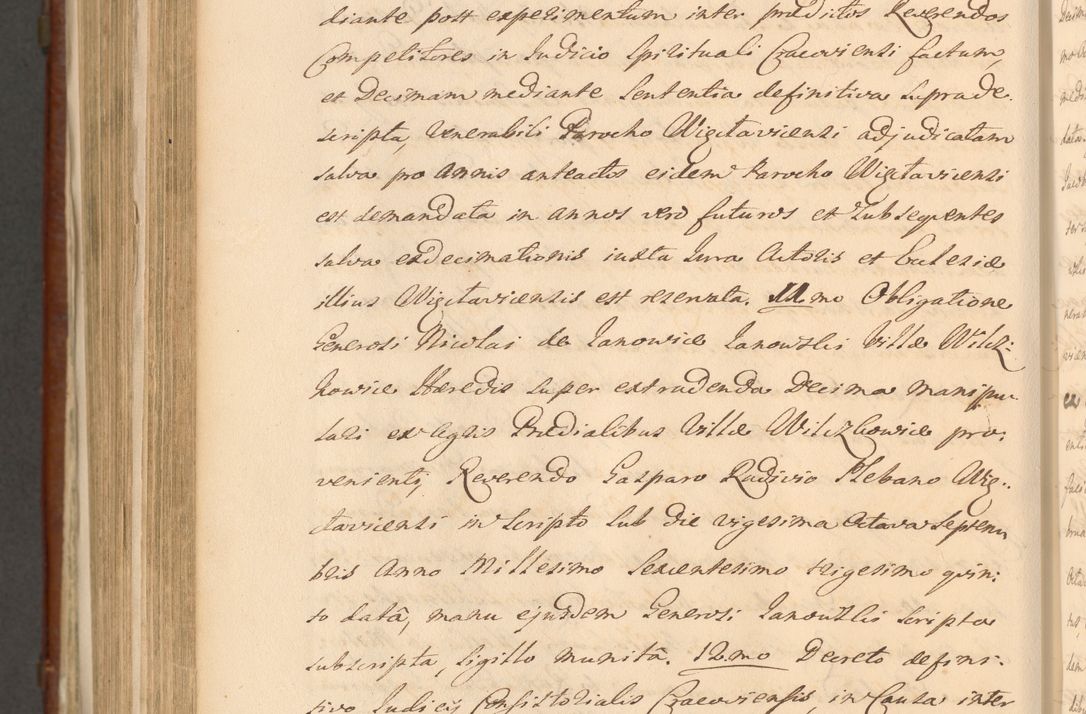 diante post experimentum inter praeditos Reverendos
Competitores in Judicio Spirituali Cracoviensi factum,
et Decimam mediante Sententia definitiva suprade-
scripta, Venerabili Parocho Wizitaviensi adjudicatam
salva pro Annis anteactis eidem Parocho Wizitaviensi
est demandata in annos vero futuros et subsequentes
salva exdecimationis iuxta Iura Actoris et Ecclesiae
illius Wizitaviensis est reservata. 11mo Obligatione
Generosi Nicolai de Janowice Janowski Villae Wilcz-
kowice Haeredis super extradenda Decima manipu-
lari ex Agris Praedialibus Villae Wilczkowice pro-
venienti, Reverendo Gasparo Rudicio Plebano Wiz-
taviensi in scripto sub die vigesima Octava Septem
bris Anno Millesimo Sexcentesimo trigesimo quin-
to datâ, manu ejusdem Generosi Janowski scripta
subscripta, sigillo munitâ. 12mo Decreto defini-
tivo Judicij Consistorialis Cracoviensis, in Causa inter